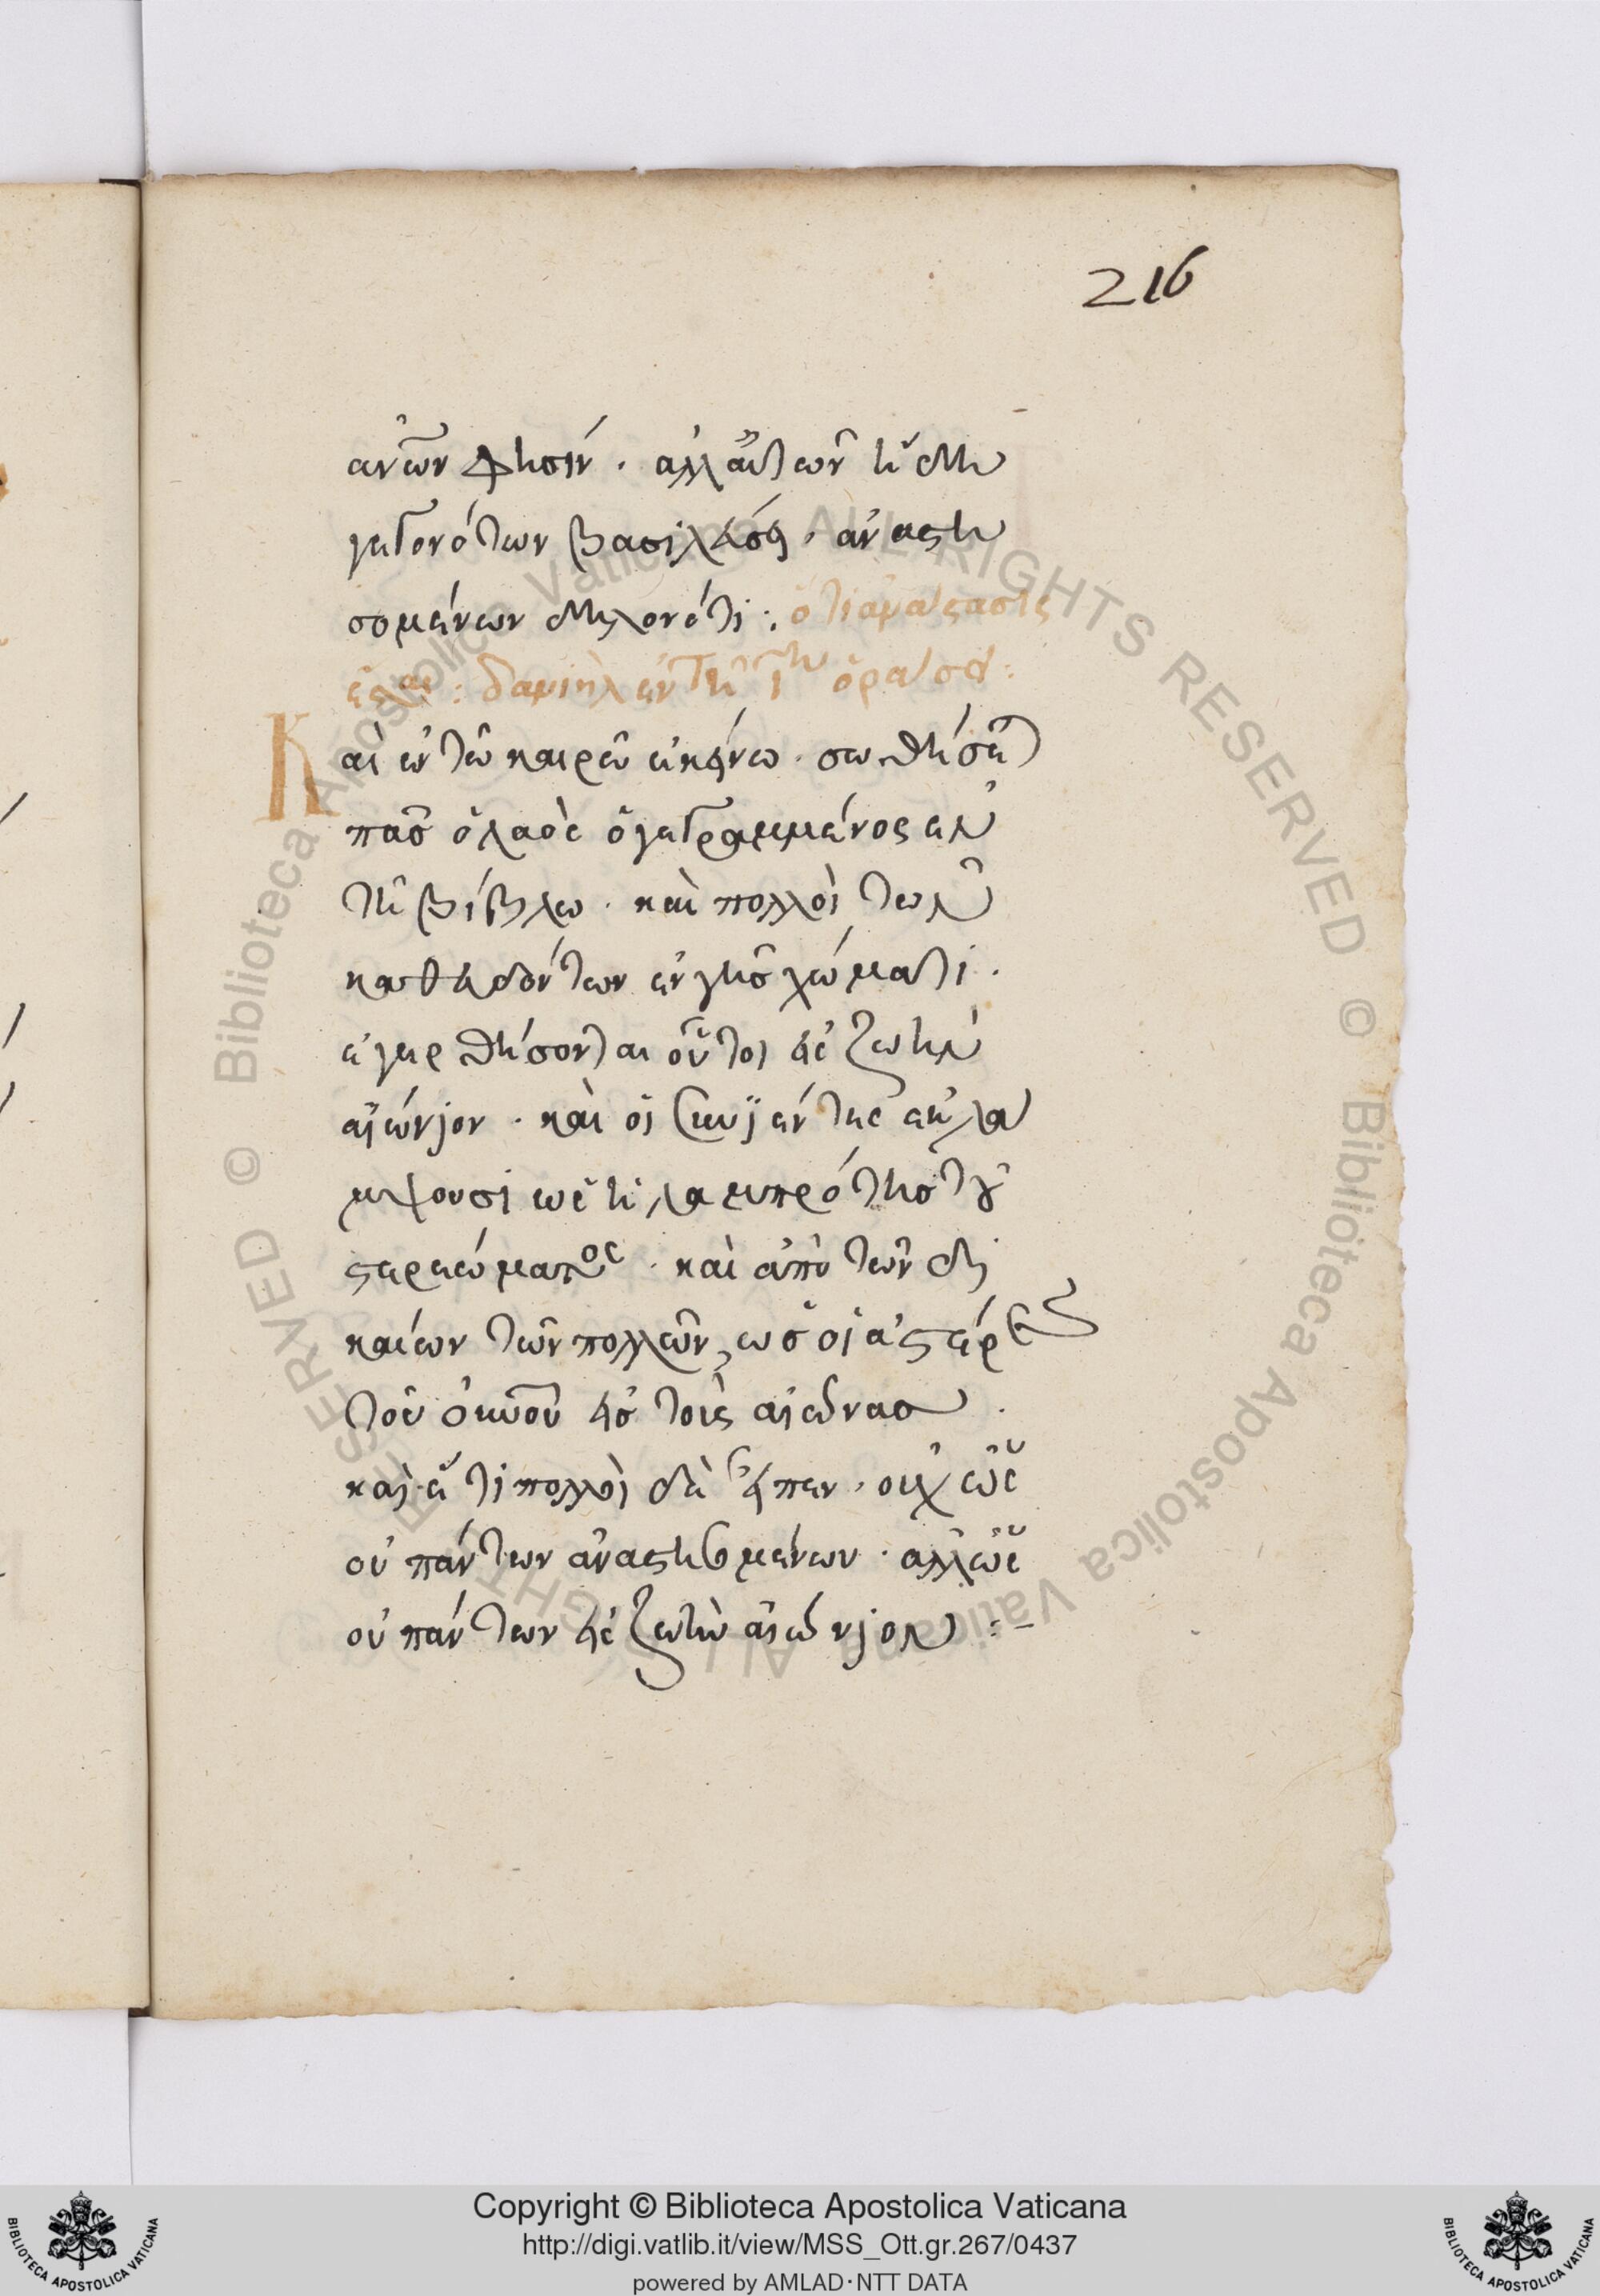 216
ανῶν φησίν · αλλ' αὐτῶν ἤδη
γεγονότων βασιλείας · ἀναστη
σομένων δηλονότι : ὅτι ἀνάστασις
ἔσται : δανιὴλ ἐν τῆ ι^η ὁράσει :
Καὶ ἐν τῶ καιρῶ ἐκείνω · σωθήσεται
πᾶς ὁ λαὸς ὁ γεγραμμένος ἐν
τῆ βίβλω · καὶ πολλοὶ τῶν
καθευδόντων ἐν γῆς χώματι ·
ἐγερθήσονται οὗτοι εἰς ζωὴν
αἰώνιον · καὶ οἱ συνιέντες ἐκλά
μψουσι ὡς ἡ λαμπρότης τοῦ
στερεώματος · καὶ ἀπὸ τῶν δι
καίων τῶν πολλῶν, ὡς οἱ ἀστέρες
τοῦ οὐνοῦ εἰς τοὺς αἰῶνας ·
καὶ ἔτι πολλοὶ δὲ εἶπεν · οὐχ ὡς
οὐ πάντων ἀναστησομένων · αλλ' ὡς
οὐ πάντων εἰς ζωὴν αἰώνιον :-
Copyright © Biblioteca Apostolica Vaticana
http://digi.vatlib.it/view/MSS_Ott.gr.267/0437
powered by AMLAD·NTT DATA
BIBLIOTECA APOSTOLICA VATICANA
BIBLIOTECA APOSTOLICA VATICANA
© Biblioteca Apostolica Vaticana ALL RIGHTS RESERVED
© Biblioteca Apostolica Vaticana ALL RIGHTS RESERVED